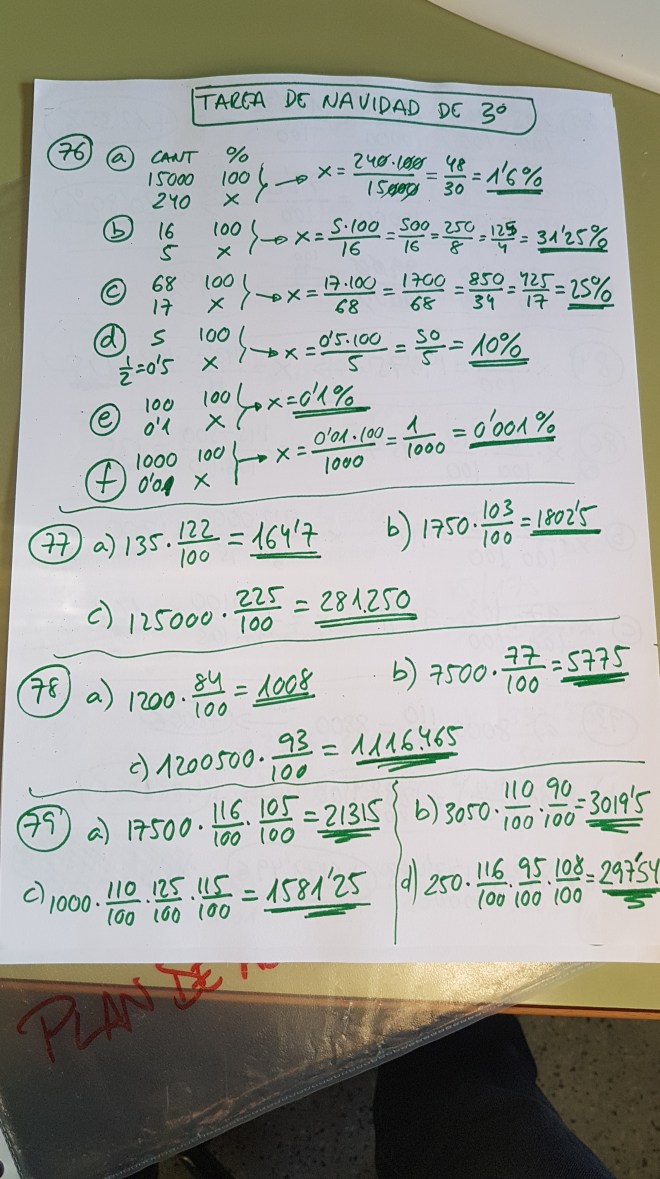 TAREA DE NAVIDAD DE 3º
76 a CANT %
15000 100
240 x → x = 240·100/15000 = 48/30 = 1'6%
b 16 100
5 x → x = 5·100/16 = 500/16 = 250/8 = 125/4 = 31'25%
c 68 100
17 x → x = 17·100/68 = 1700/68 = 850/34 = 425/17 = 25%
d 5 100
1/2=0'5 x → x = 0'5·100/5 = 50/5 = 10%
e 100 100
0'1 x → x = 0'1%
f 1000 100
0'01 x → x = 0'01·100/1000 = 1/1000 = 0'001%
77 a) 135·122/100 = 164'7 b) 1750·103/100 = 1802'5
c) 125000·225/100 = 281.250
78 a) 1200·84/100 = 1008 b) 7500·77/100 = 5775
c) 1200500·93/100 = 1116.465
79 a) 17500·116/100·105/100 = 21315 b) 3050·110/100·90/100 = 3019'5
c) 1000·110/100·125/100·115/100 = 1581'25 d) 250·116/100·95/100·108/100 = 297'54
PLAN DE